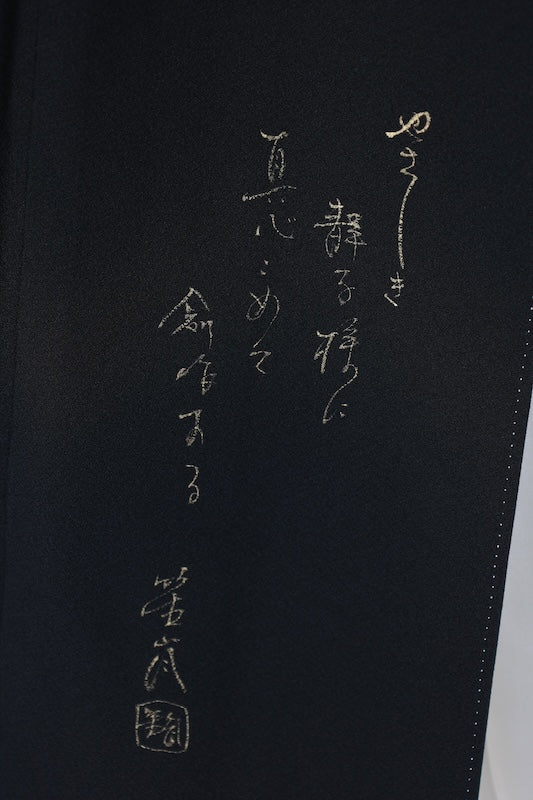 やさしき
静子様に
真心こめて
創作する